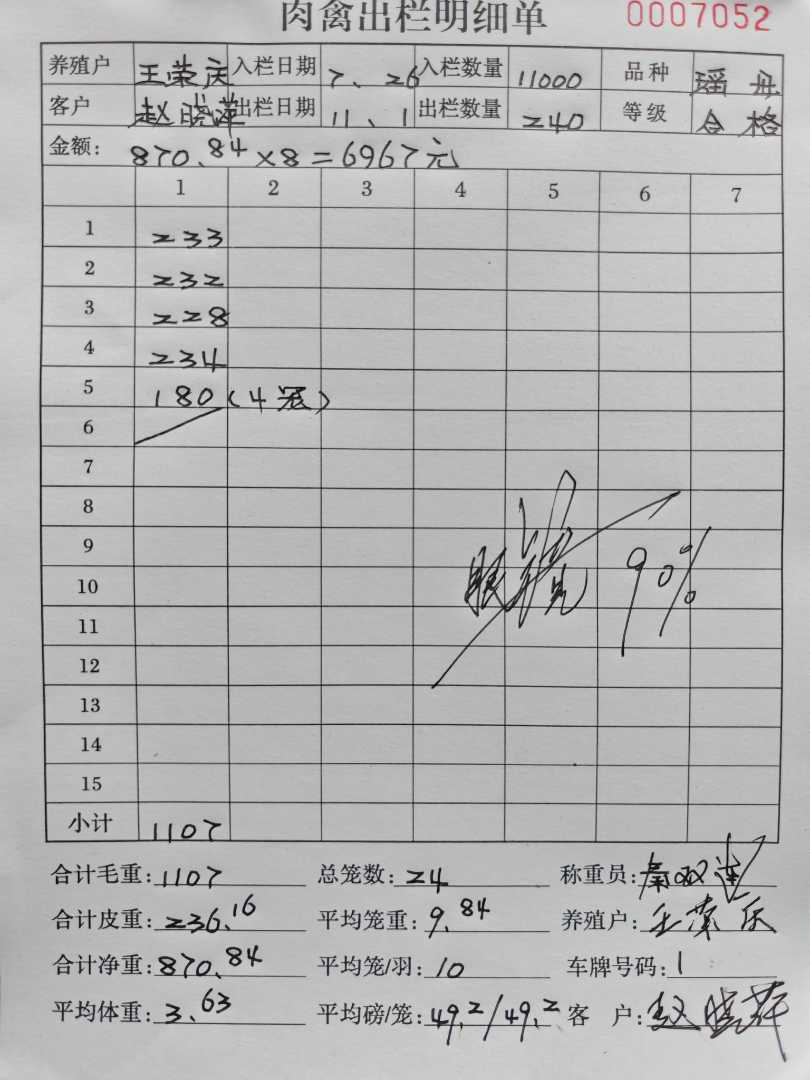 肉禽出栏明细单 0007052
养殖户 王荣庆 入栏日期 7、26 入栏数量 11000 品种 瑶丹
客户 赵晓萍 出栏日期 11、1 出栏数量 240 等级 合格
金额: 870.84×8=6967元
1 2 3 4 5 6 7
1 233
2 232
3 228
4 234
5 180(4冠)
6
7
8
9 90%
10
11
12
13
14
15
小计 1107
合计毛重: 1107 总笼数: 24 称重员:
合计皮重: 236.16 平均笼重: 9.84 养殖户: 王荣庆
合计净重: 870.84 平均笼/羽: 10 车牌号码: 1
平均体重: 3.63 平均磅/笼: 49.2/49.2 客户: 赵晓萍